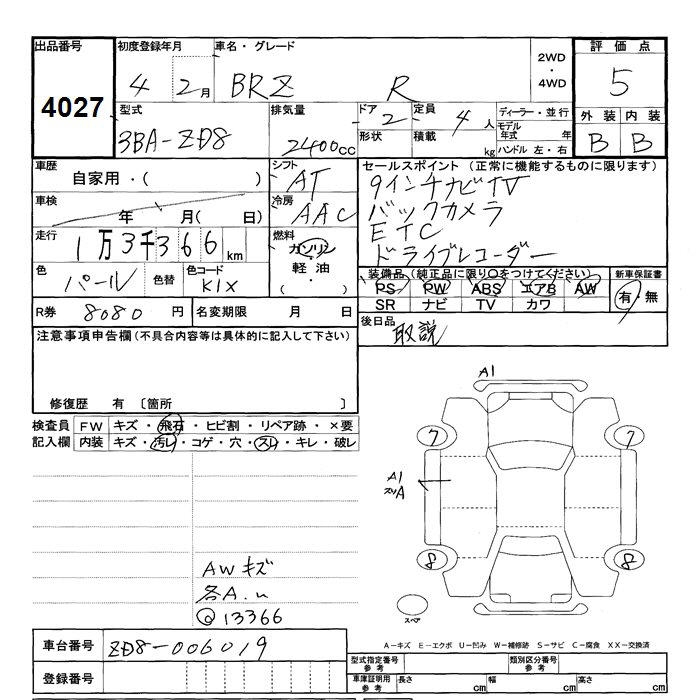 出品番号 4027
初度登録年月 4 2月
車名・グレード BRZ R
2WD ・ 4WD
評価点 5
外装 内装
B B
型式 3BA-ZD8
排気量 2400cc
ドア 2
定員 4人
形状
積載 kg
ディーラー・並行
モデル年式 年
ハンドル 左・右
車歴 自家用・( )
シフト AT
セールスポイント (正常に機能するものに限ります)
9インチナビTV
バックカメラ
ETC
ドライブレコーダー
車検 年 月( 日)
冷房 AAC
走行 1万3千366km
燃料 ガソリン
軽油
( ・ )
色 パール 色替
色コード K1X
装備品(純正品に限り○をつけてください)
PS PW ABS エアB AW
SR ナビ TV カワ
新車保証書 有・無
R券 8080円
名変期限 月 日
後日品 取説
注意事項申告欄(不具合内容等は具体的に記入して下さい)
修復歴 有 〔箇所 〕
検査員記入欄
FW キズ・飛石・ヒビ割・リペア跡・×要
内装 キズ・汚レ・コゲ・穴・スレ・キレ・破レ
A1
7 7
A1
スリA
8 8
スペア
AWキズ
各A.
13366
A-キズ E-エクボ U-凹み W-補修跡 S-サビ C-腐食 XX-交換済
車台番号 ZD8-006019
登録番号
型式指定番号 参考
類別区分番号 参考
車庫証明用 参考
長さ cm 幅 cm 高さ cm